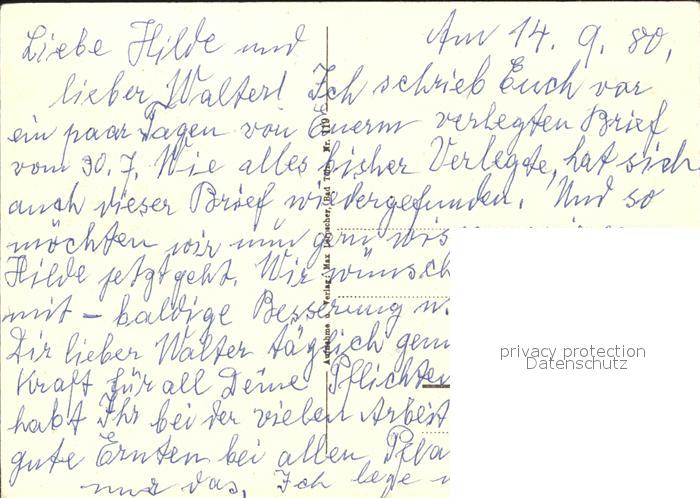 Am 14. 9. 80,
Liebe Hilde und
lieber Walter! Ich schrieb Euch vor
ein paar Tagen von Euerm verlegten Brief
vom 30. 7. Wie alles bisher Verlegte, hat sich
auch dieser Brief wiedergefunden. Und so
möchten wir nun gern
Hilde jetzt geht. Wir wünsch
mit – baldige Besserung u.
Dir lieber Walter täglich genu
Kraft für all Deine Pflichten
habt Ihr bei der vielen Arbeit
gute Ernten bei allen
und das. Ich lege
Aufnahme u. Verlag: Max Nr. 119
privacy protection
Datenschutz